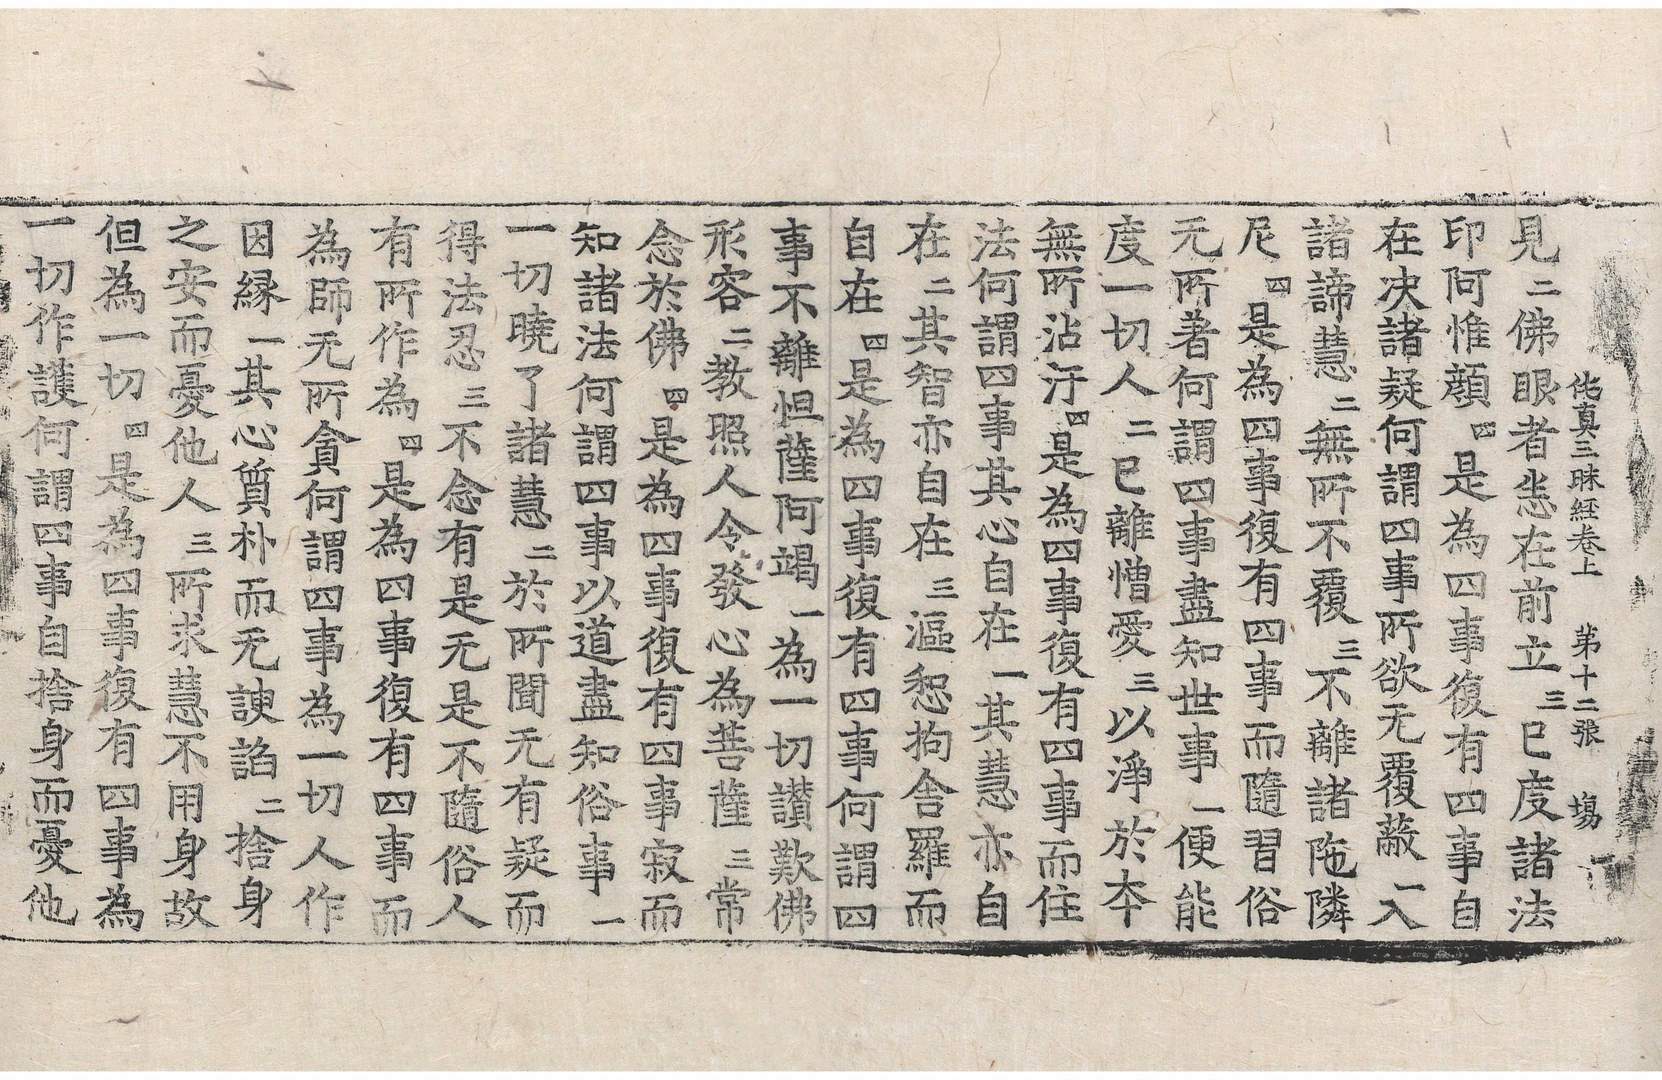 他真三昧経卷上　第十二张　塲
見二佛眼者悉在前立三已度諸法
印阿惟顔四是為四事復有四事自
在决諸疑何謂四事所欲无覆蔽一入
諸諦慧二無所不覆三不離諸陁隣
尼四是為四事復有四事而隨習俗
无所著何謂四事盡知世事一便能
度一切人二已離憎愛三以淨於本
無所沾汙四是為四事復有四事而住
法何謂四事其心自在一其慧亦自
在二其智亦自在三漚惒拘舍羅而
自在四是為四事復有四事何謂四
事不離怛薩阿竭一為一切讃歎佛
形容二教照人令發心為菩薩三常
念於佛四是為四事復有四事寂而
知諸法何謂四事以道盡知俗事一
一切曉了諸慧二於所聞无有疑而
得法忍三不念有是无是不隨俗人
有所作為四是為四事復有四事而
為師无所貪何謂四事為一切人作
因縁一其心質朴而无諛諂二捨身
之安而憂他人三所求慧不用身故
但為一切四是為四事復有四事為
一切作護何謂四事自捨身而憂他